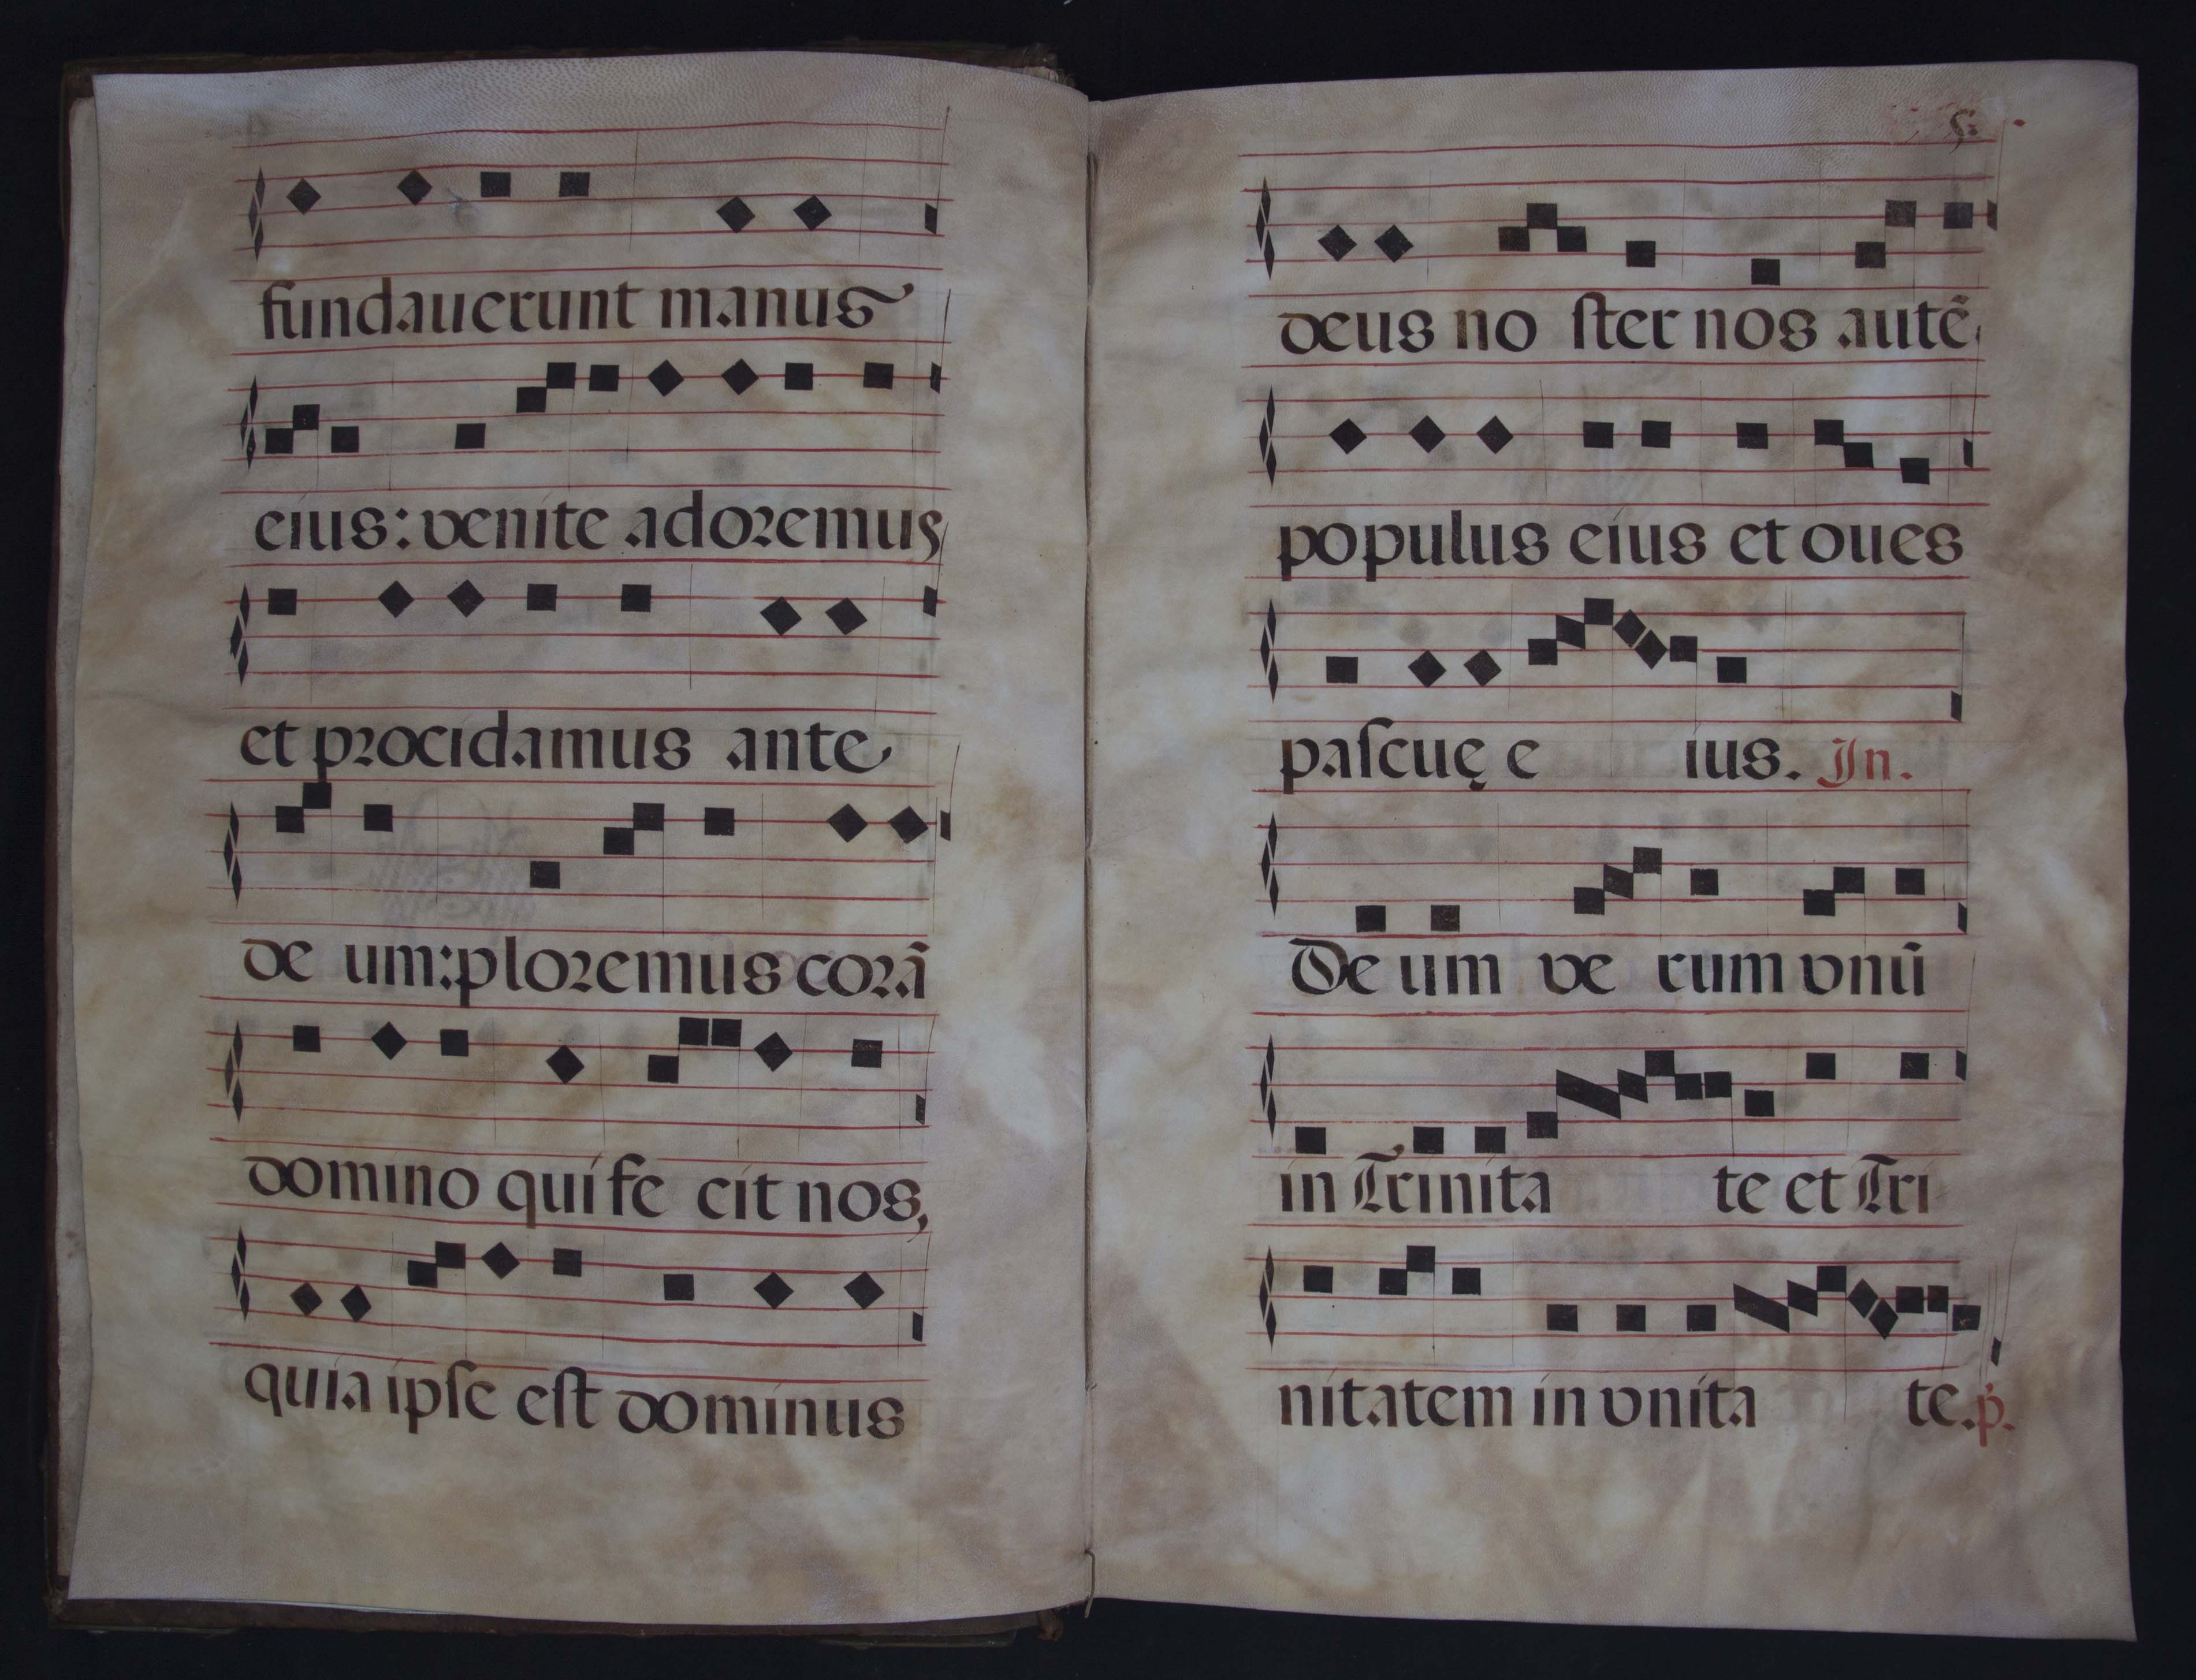 fundauerunt manus
eius: venite adoremus
et procidamus ante
de um: ploremus corã
domino qui fe cit nos,
quia ipſe eſt dominus
5.
deus no ſter nos autẽ
populus eius et oues
paſcuę e ius. In.
De um ve rum vnũ
in Trinita te et Tri
nitatem in vnita te. p̃.